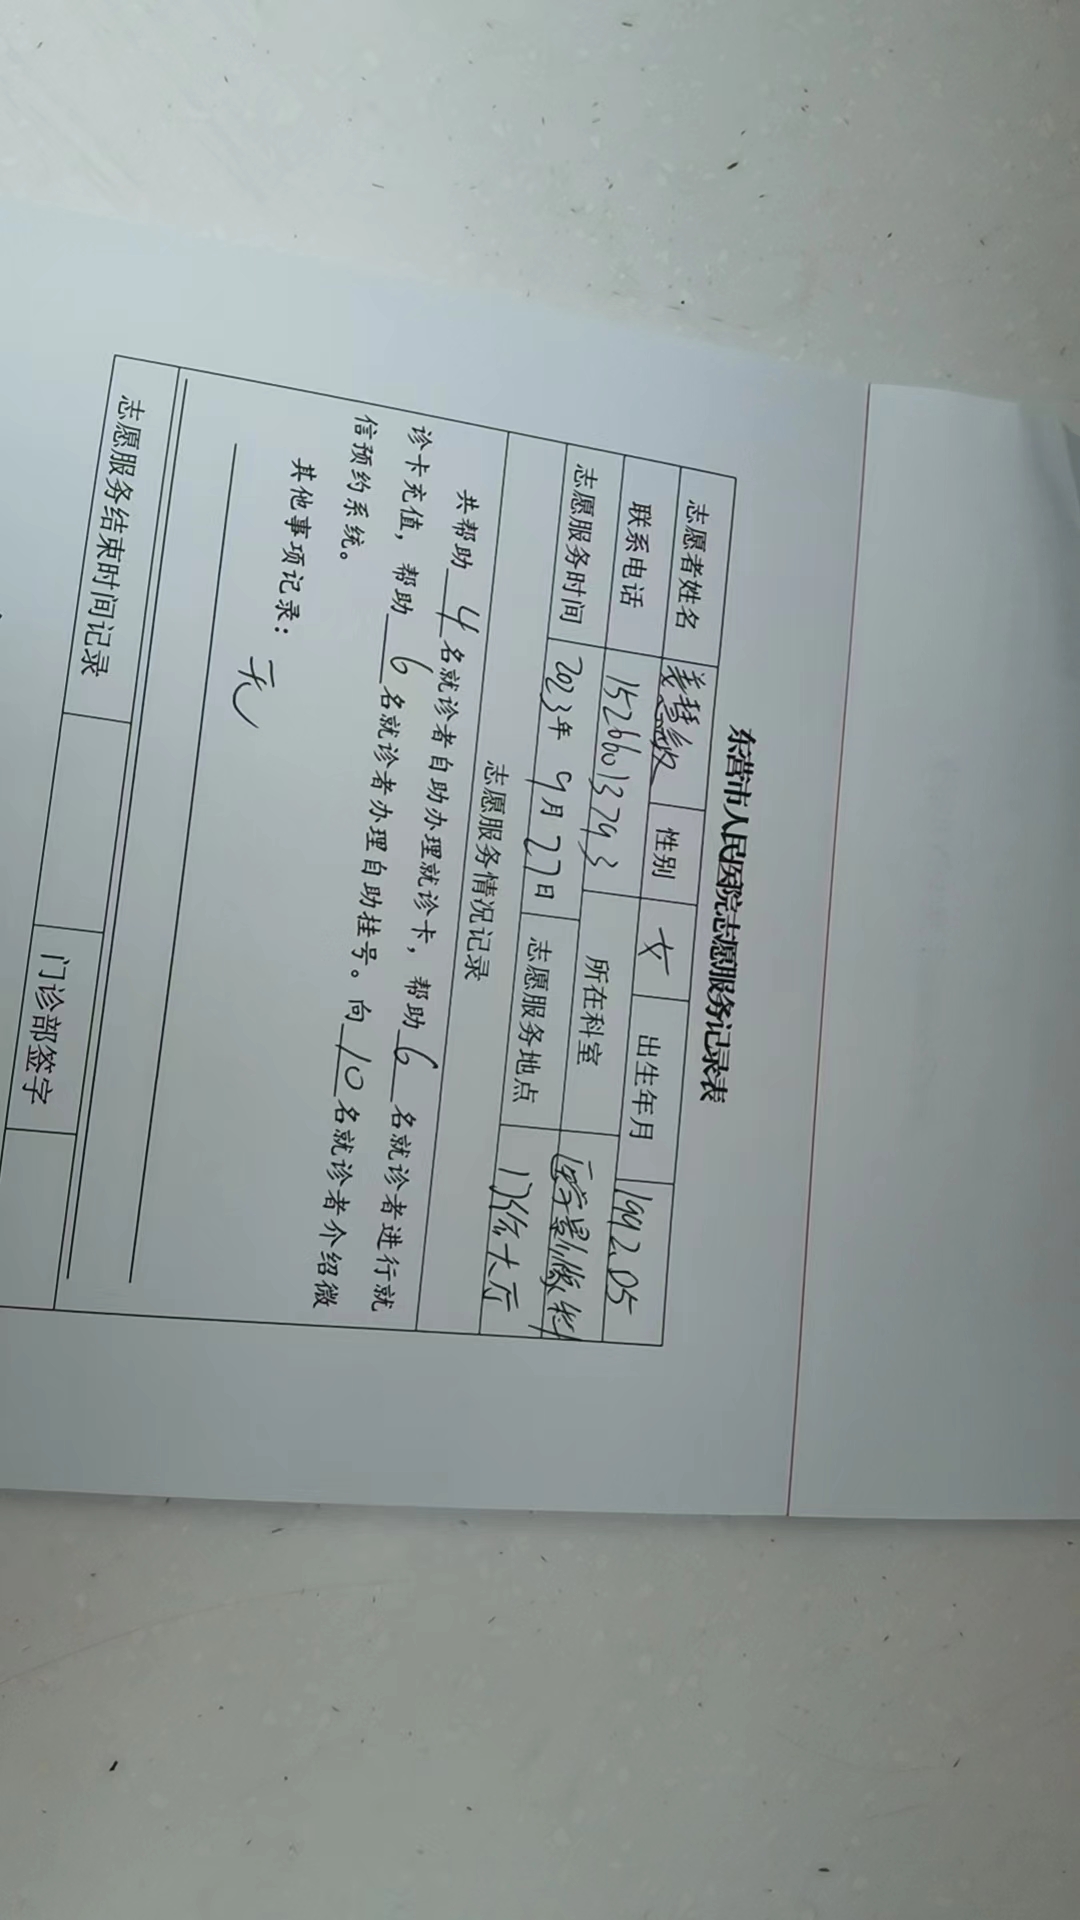 东营市人民医院志愿服务记录表
志愿者姓名 姜慧敏 性别 女 出生年月 1992.05
联系电话 15266013793 所在科室 医学影像科
志愿服务时间 2023年 9月27日 志愿服务地点 门诊大厅
志愿服务情况记录
共帮助 4 名就诊者自助办理就诊卡，帮助 6 名就诊者进行就
诊卡充值，帮助 6 名就诊者办理自助挂号。向 10 名就诊者介绍微
信预约系统。
其他事项记录：
无
志愿服务结束时间记录 门诊部签字